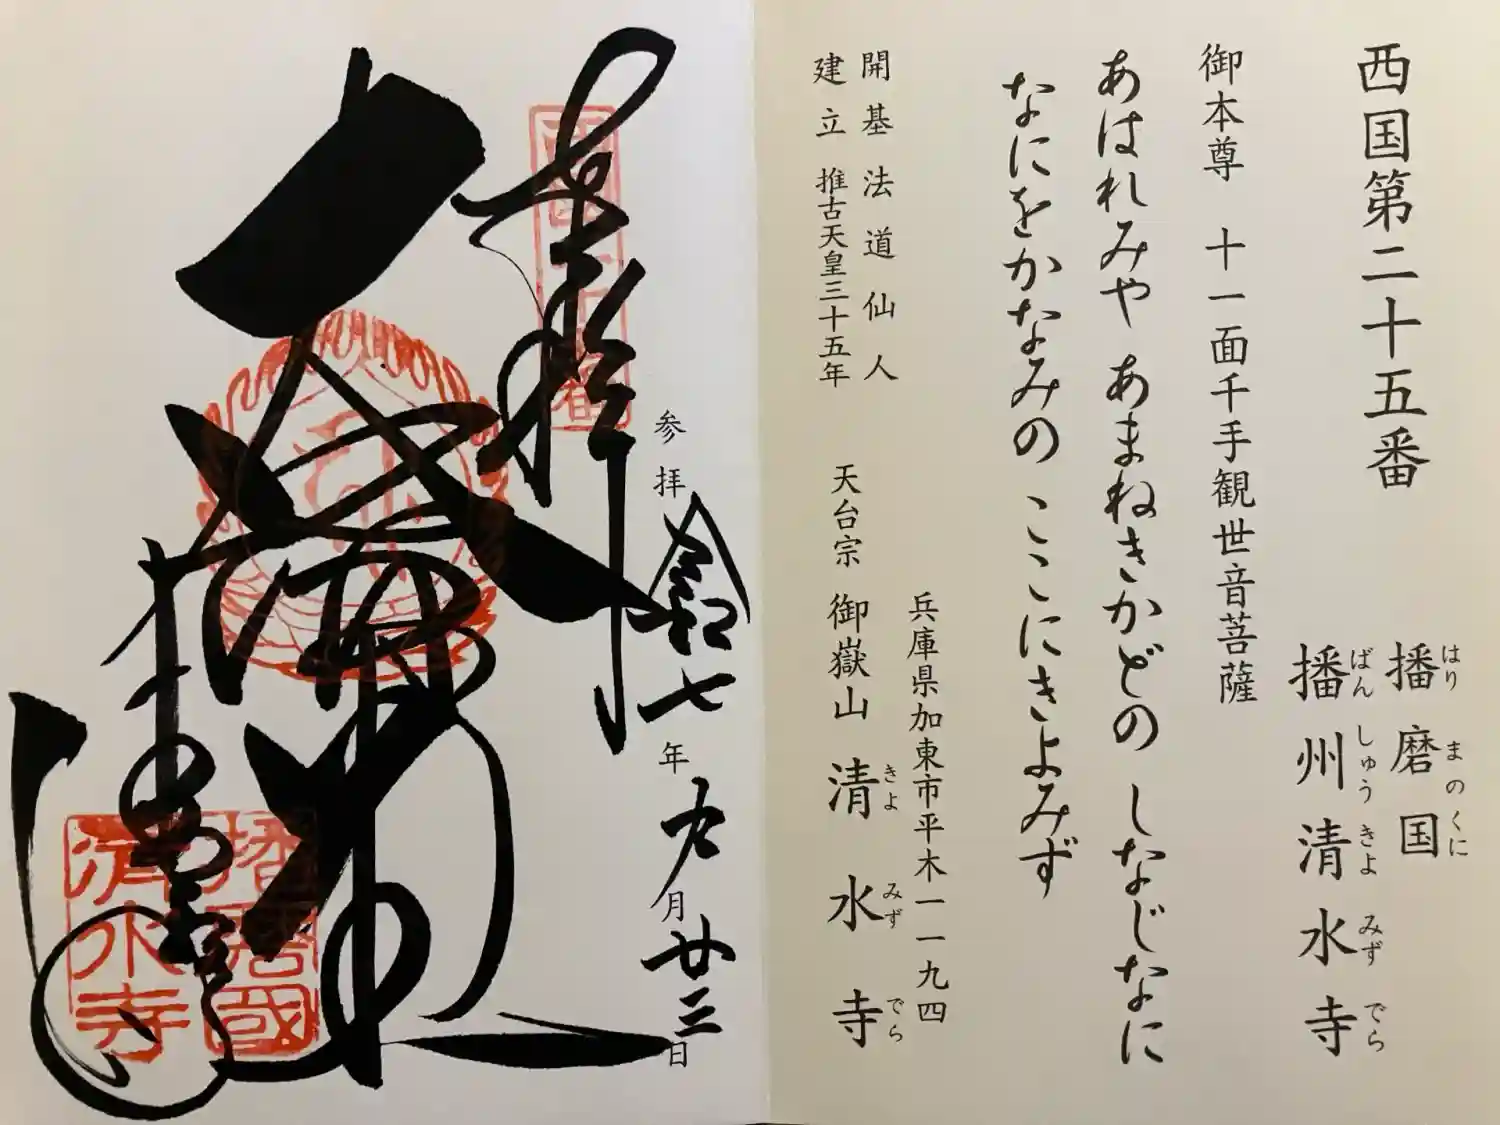 西国第二十五番
播磨国
はりまのくに
播州清水寺
ばんしゅうきよみずでら
御本尊 十一面千手観世音菩薩
あはれみや あまねきかどの しなじなに
なにをかなみの ここにきよみず
開基 法道仙人
建立 推古天皇三十五年
兵庫県加東市平木一一九四
天台宗 御嶽山 清水寺
きよみずでら
参拝 令和七年九月廿三日
奉拝
播磨國
清水寺